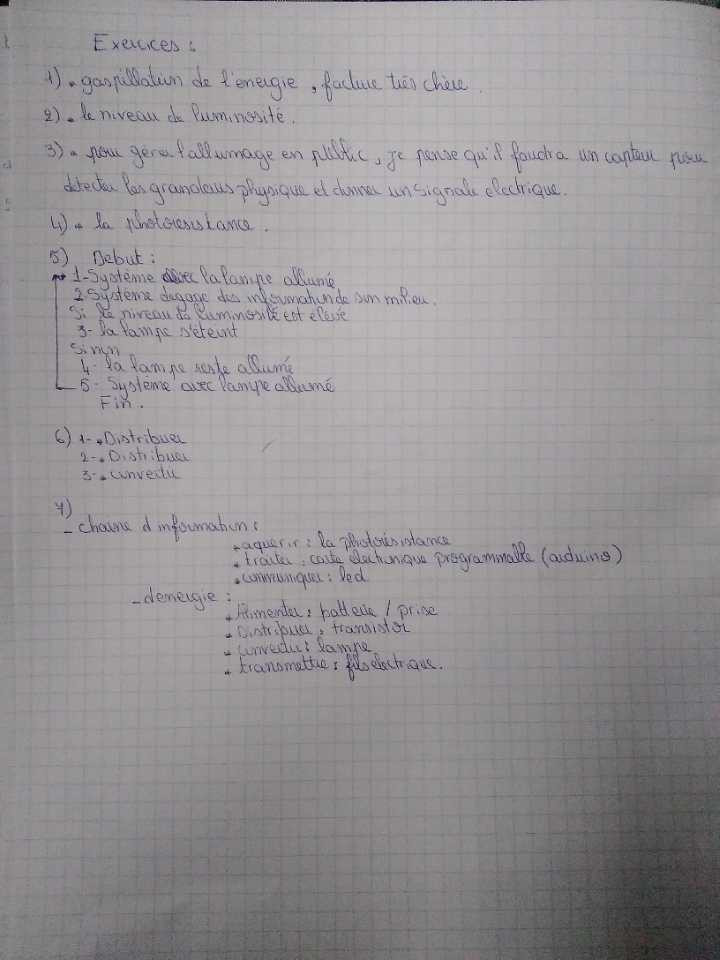 Exercices :
1) • gaspillation de l'énergie, facture très chère.
2) • le niveau de luminosité.
3) • pour gérer l'allumage en public, je pense qu'il faudra un capteur pour
détecter les grandeurs physique et donner un signale electrique.
4) • la photoresistance.
5) Debut :
1-Système avec la lampe allumé
2-Système degage des information de son milieu.
Si le niveau de luminosité est elevé
3- la lampe s'éteint
Sinon
4- la lampe reste allumé
5- Système avec lampe allumé
Fin.
6) 1- • Distribuer
2- • Distribuer
3- • convertir
7)
- chaine d'information :
• aquerir : la photorésistance
• traiter : carte electronique programmable (arduino)
• communiquer : led
- denergie :
• Alimenter : batterie / prise
• Distribuer : transistor
• convertir : lampe
• transmettre : fils electrique.